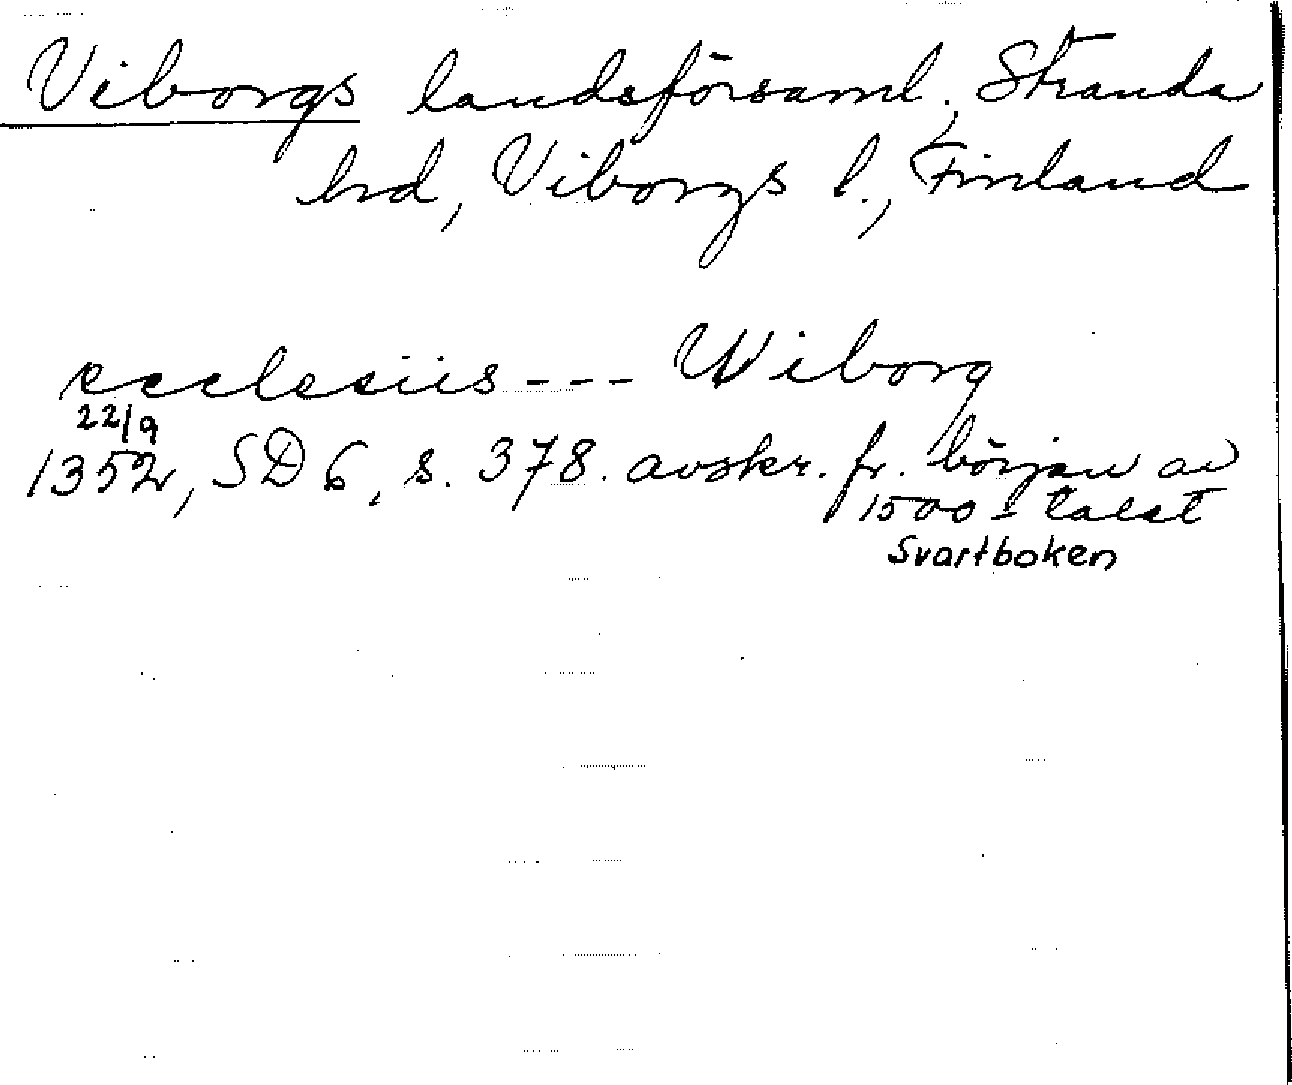 Viborgs landsförsaml., Stranda
hd, Viborgs l., Finland
ecclesiis --- Wiborg
22/9
1352, SD 6, s. 378. avskr. fr. början av
1500-talet
Svartboken